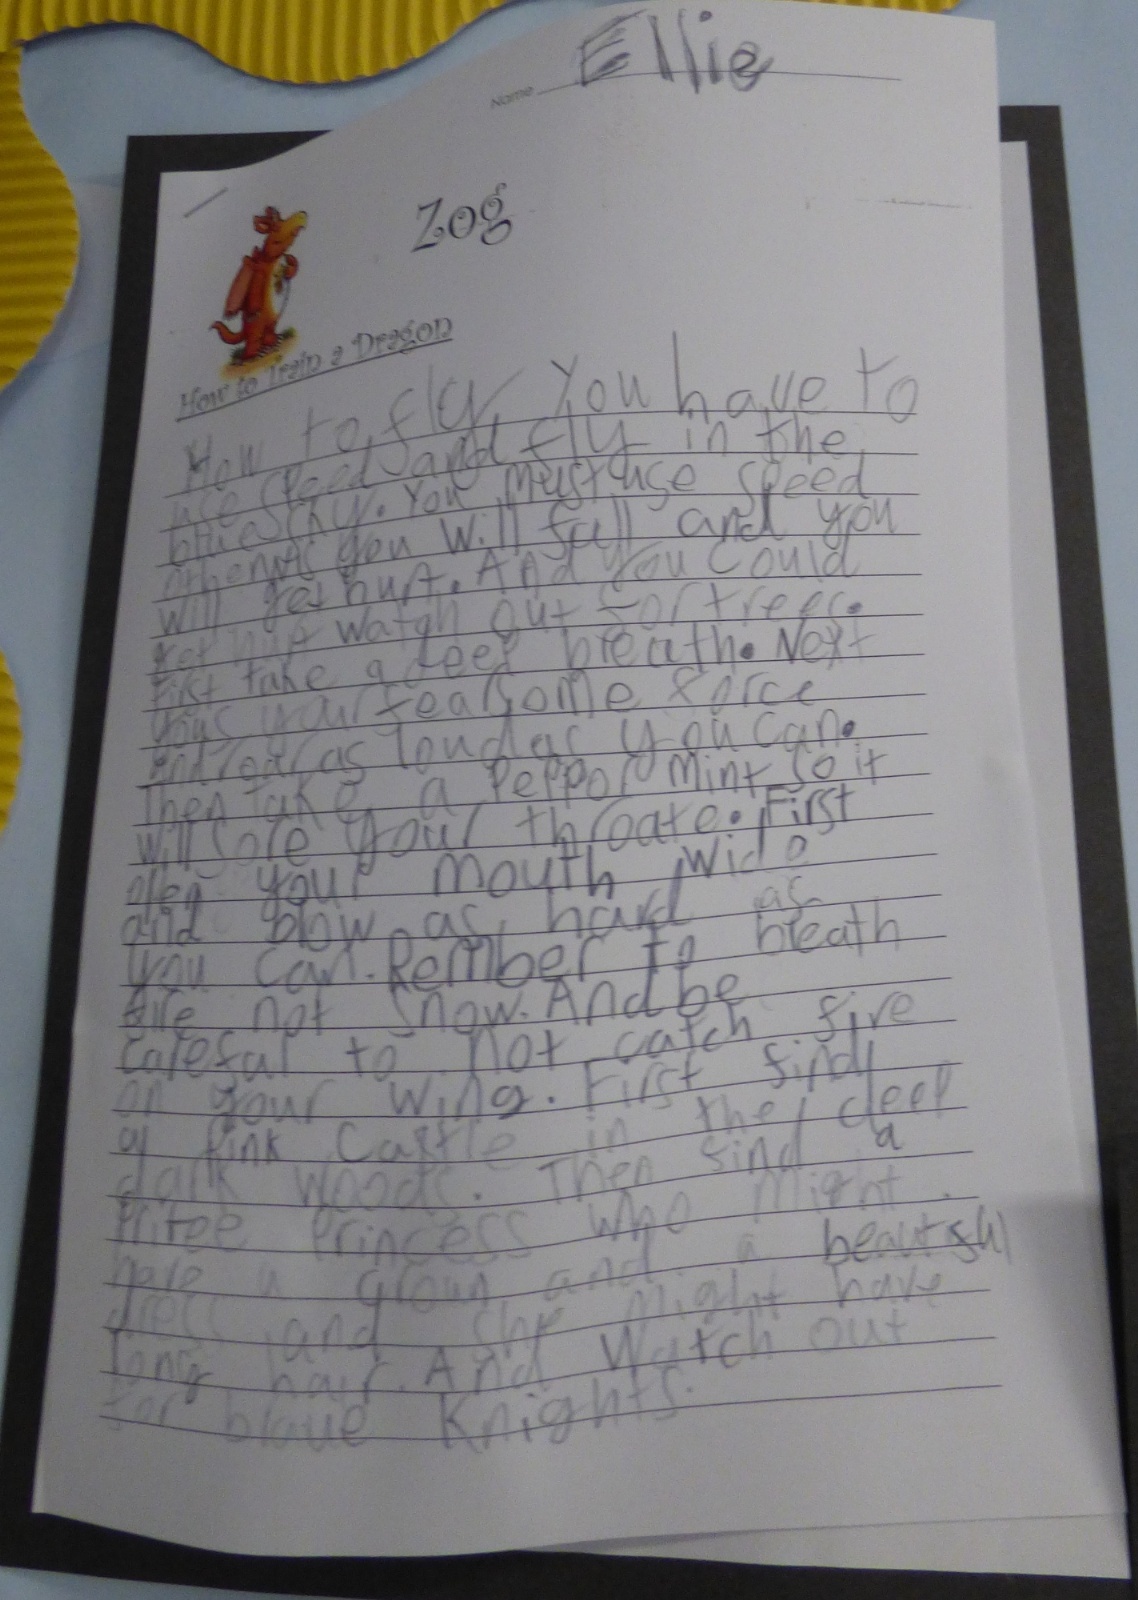 Name Ellie
Zog
How to Train a Dragon
How to fly, You have to
use speed and fly in the
blue sky. You Must use speed
you Will fall and you
will get hurt. And you could
watch out for trees.
First take a deep breath. Next
your fearsome force
and roar as loud as you can.
Then take a Pepper Mint so it
will sore your throate. First
open your mouth wide
and blow as hard as
you can. Rember to breath
fire not snow. And be
careful to not catch fire
on your wing. First find
a pink Castle in the deep
dark woods. Then find a
Princess who might
have a and a beautiful
dress and she might have
long hair. And Watch out
for Knights.